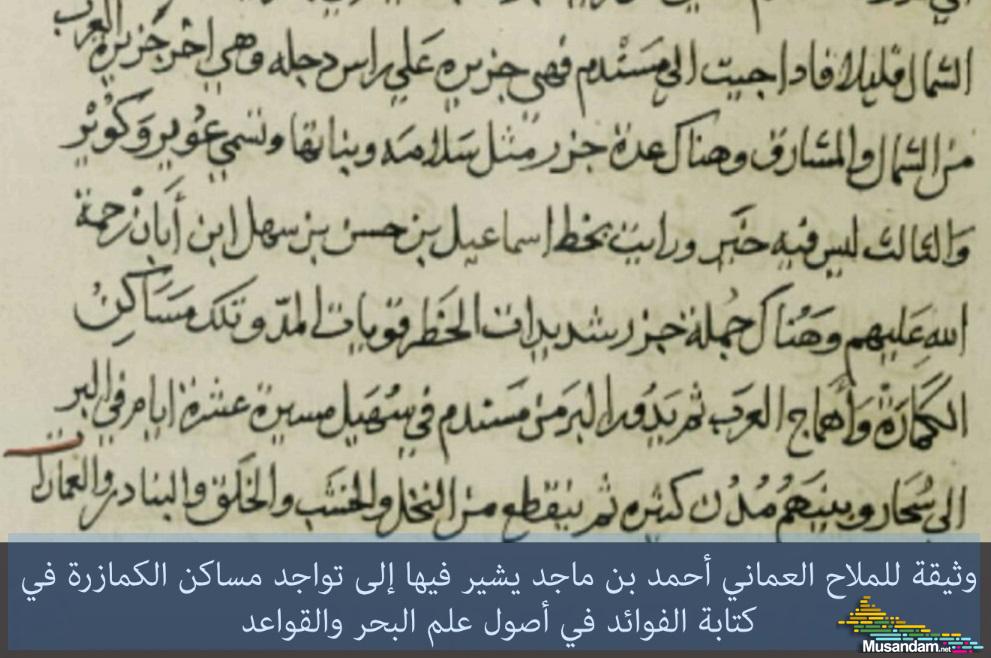 الشمال قليلا فاذا جيت الى مسندم فهي جزيره على راس دجله وهي اخر جزيره العرب
من الشمال والمشارق وهناك عدة جزر مثل سلامه وبناتها وتسمي عوير وكوير
والثالث ليس فيه خير ورايت بخط اسماعيل بن حسن بن سهل ابن أبان رحمة
الله عليهم وهناك جملة جزر شديدات الخطر قويات المد وتلك مساكن
الكمازرة وأهماج العرب ثم يدور البر من مسندم في سهيل مسيرة عشرة ايام في البر
الى سحار وبينهم مدن كثيره ثم ينقطع من النخل والخشب والخلق والبنادر والعمار
وثيقة للملاح العماني أحمد بن ماجد يشير فيها إلى تواجد مساكن الكمازرة في
كتابة الفوائد في أصول علم البحر والقواعد
Musandam.net